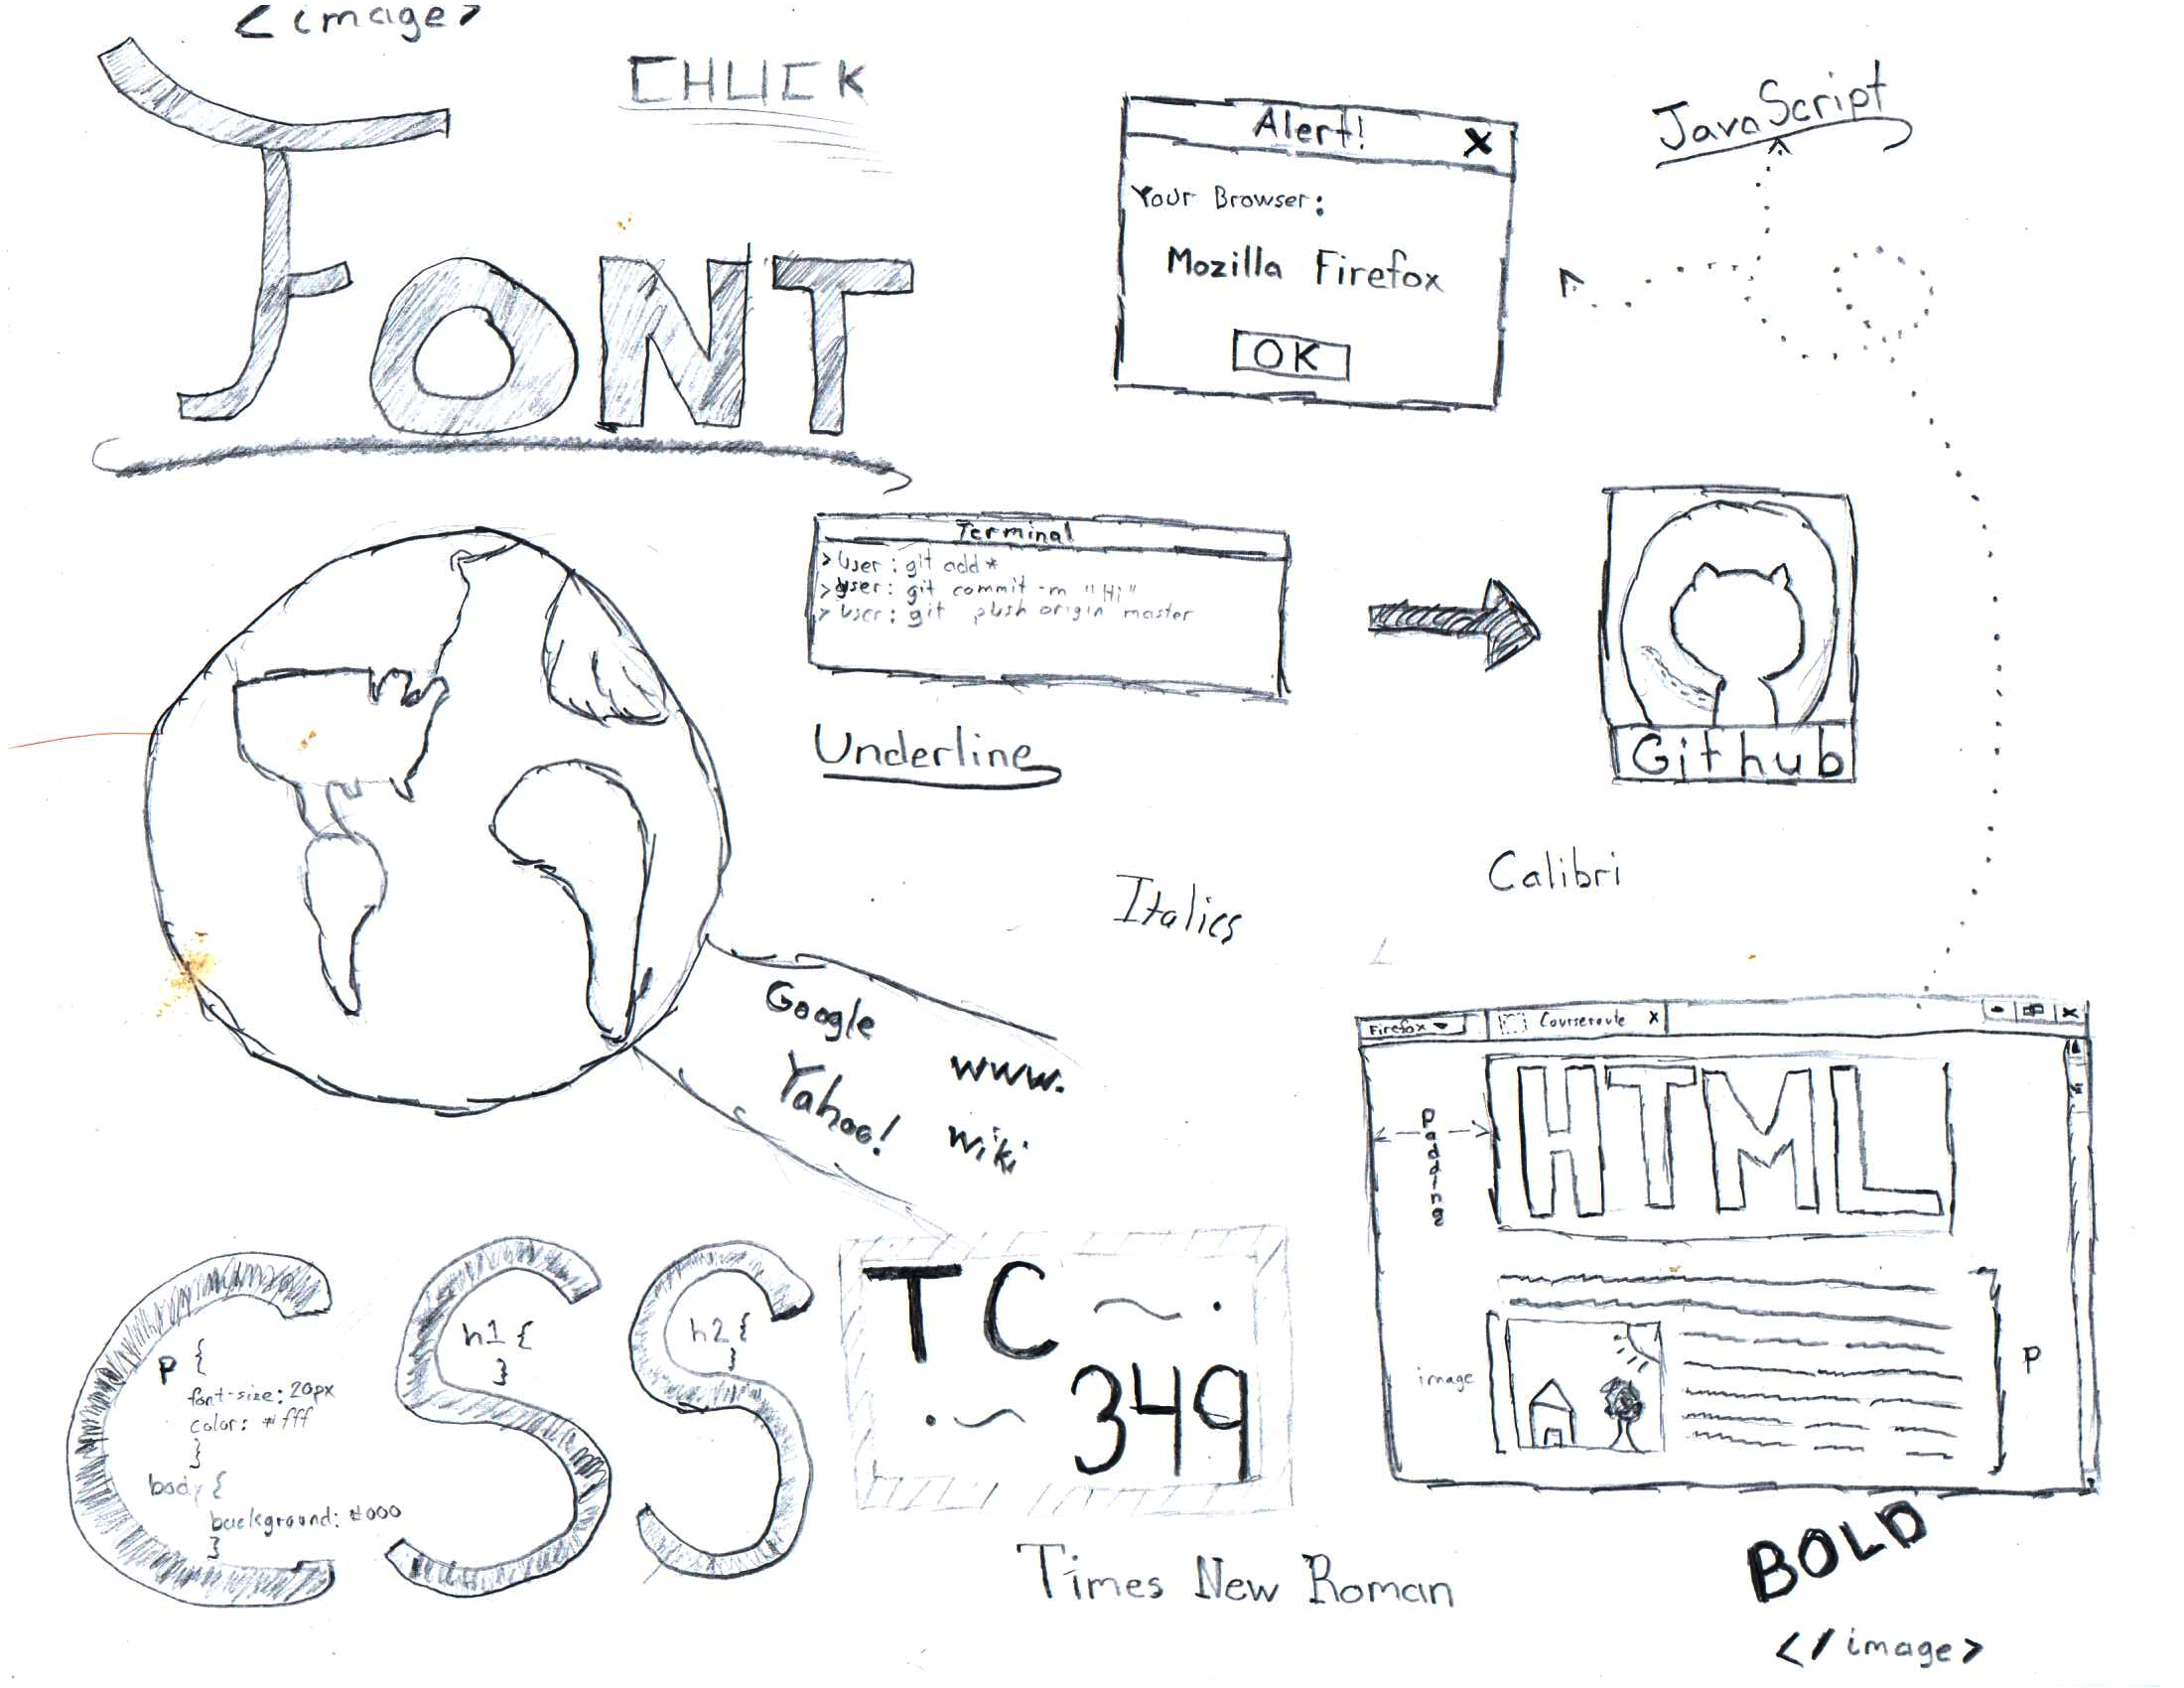 <image>
CHUCK
FONT
Alert! X
Your Browser:
Mozilla Firefox
OK
JavaScript
Terminal
> user: git add *
> user: git commit -m "Hi"
> user: git push origin master
Github
Underline
Italics
Calibri
Google
www.
Yahoo!
wiki
Firefox
Courseroute X
X
HTML
Padding
image
P
CSS
p {
font-size: 20px
color: #fff
}
body {
background: #000
}
h1 {
}
h2 {
}
TC ~ .
. ~ 349
Times New Roman
BOLD
</image>